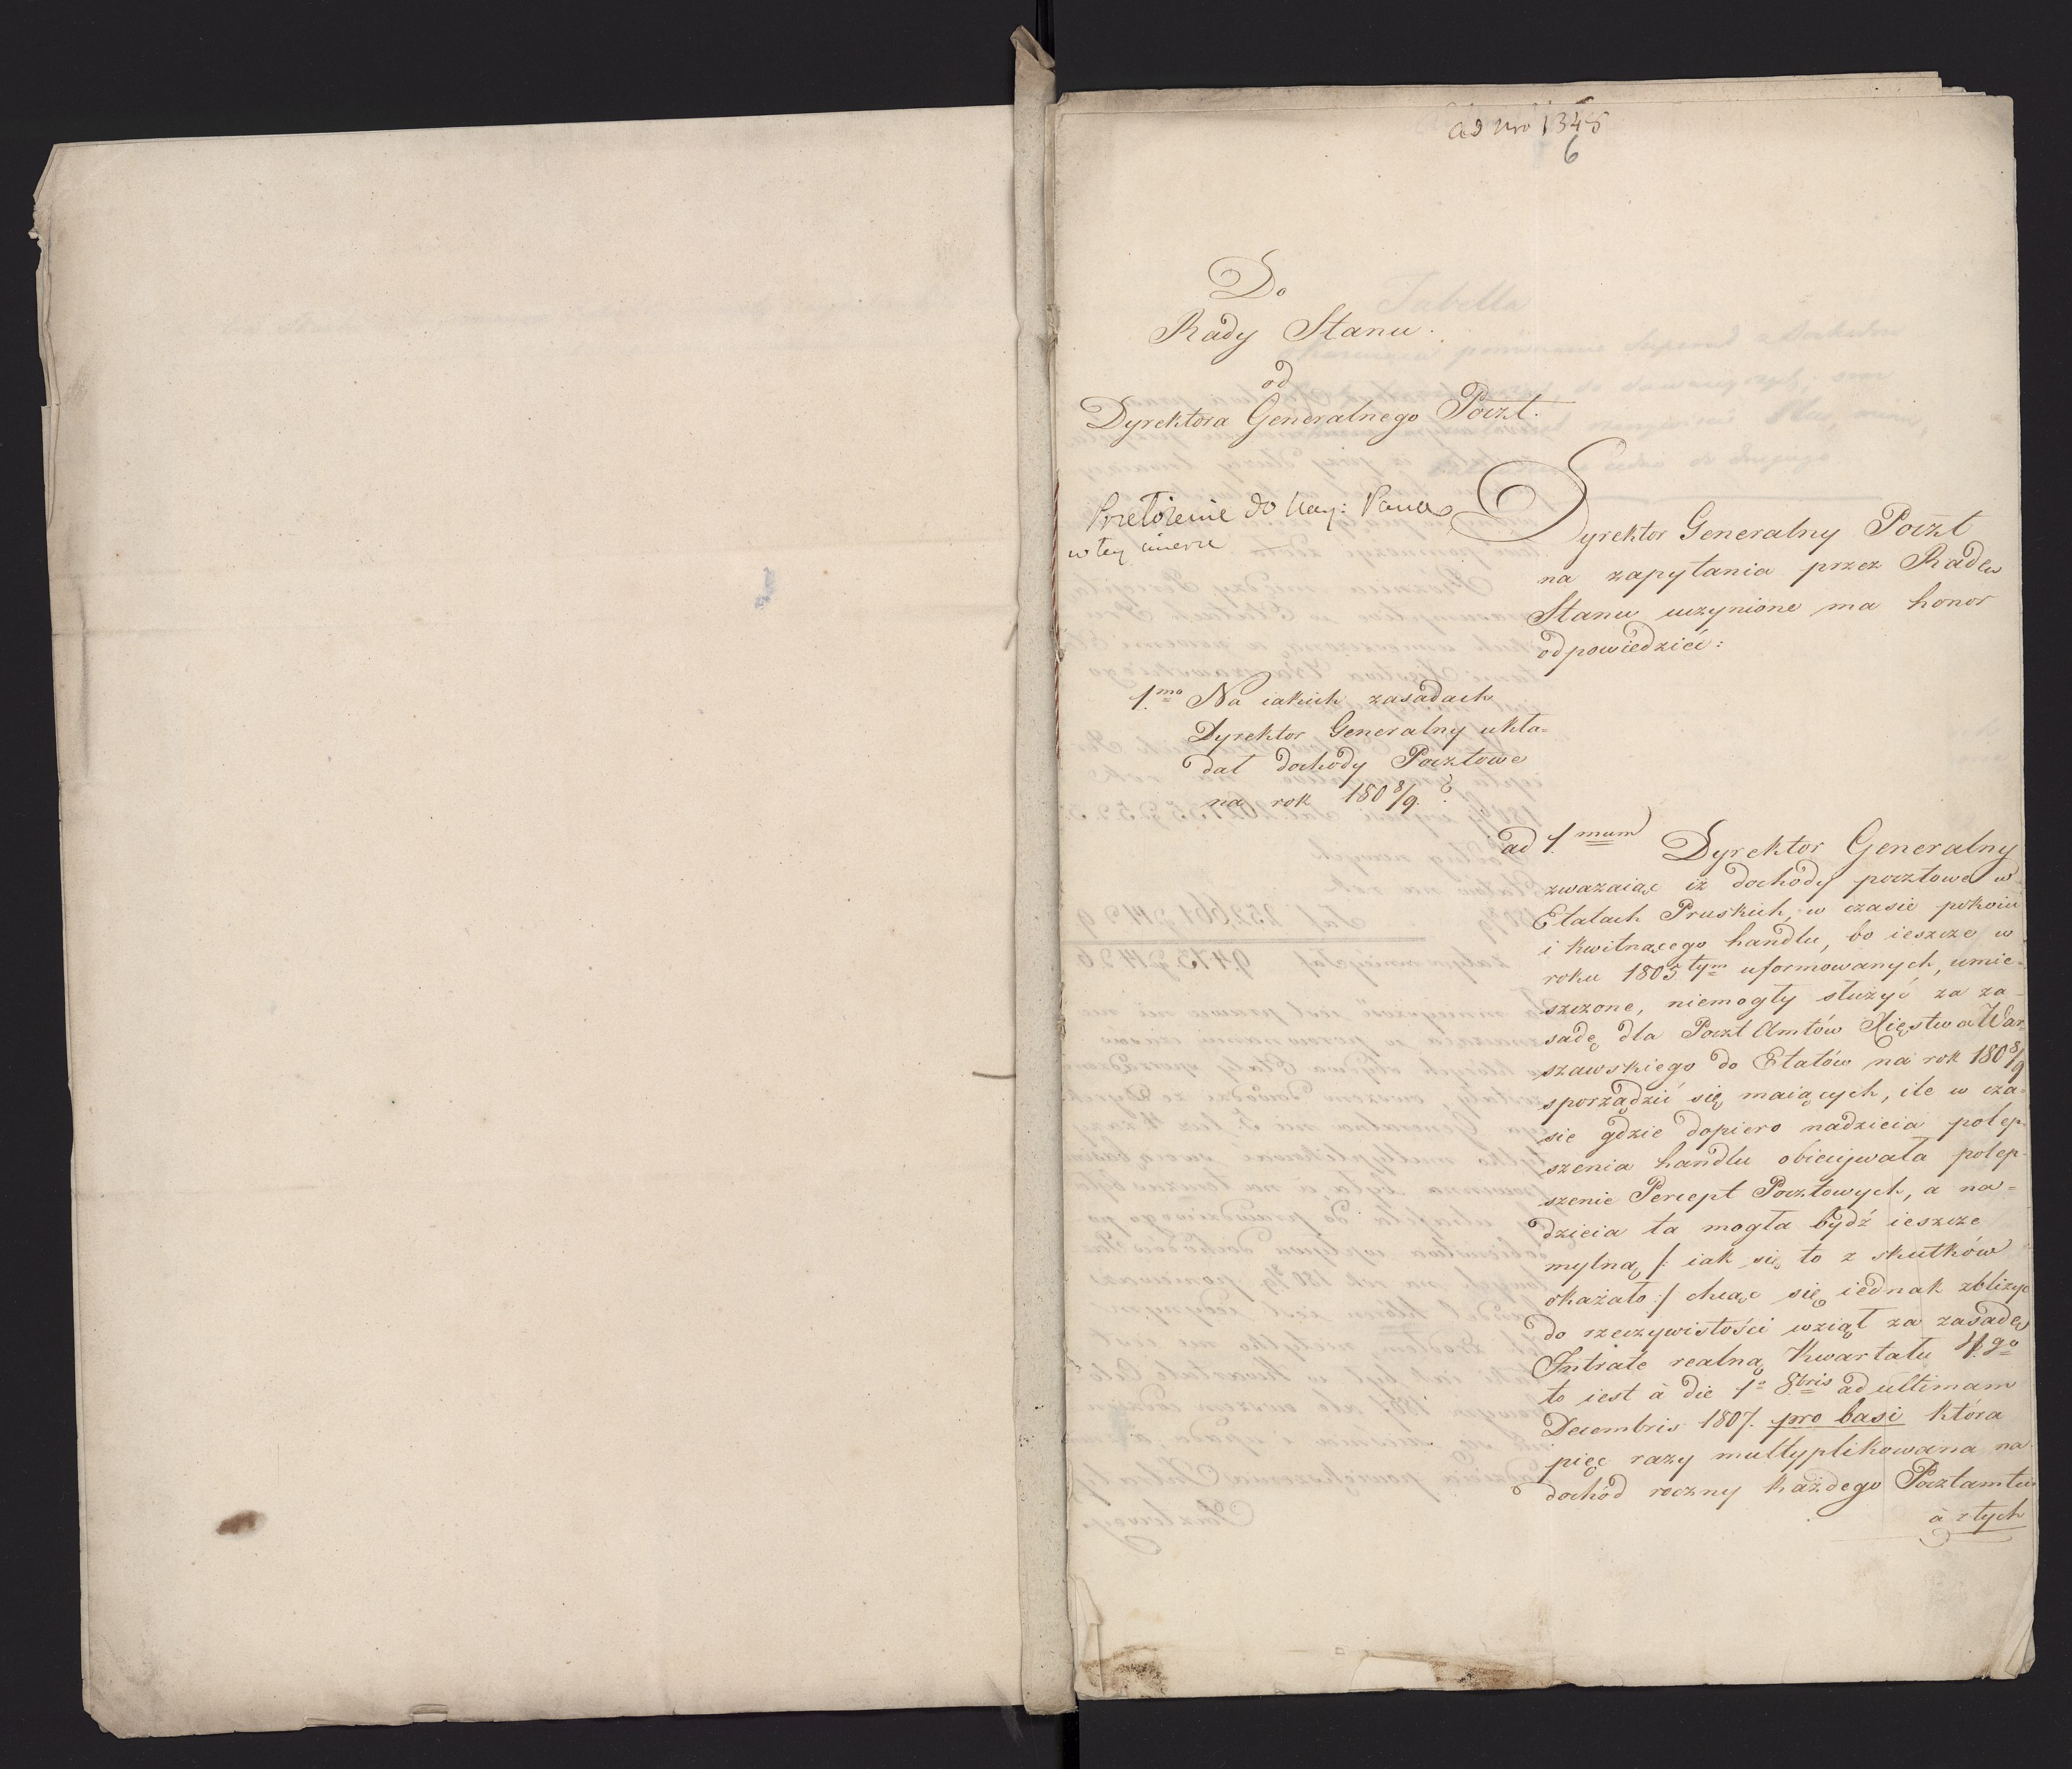 ad Nro 1345
6
Do
Rady Stanu.
od
Dyrektora Generalnego Poczt.
Przełożenie do Nay: Pana
w tey mierze
Dyrektor Generalny Poczt
na zapytania przez Radę
Stanu uczynione ma honor
odpowiedzieć:
1.mo Na iakich zasadach
Dyrektor Generalny ukła=
dał dochody Pocztowe
na rok 1808/9. ?
ad 1.mum Dyrektor Generalny
zwazaiąc iż dochody pocztowe w
Etatach Pruskich, w czasie pokoiu
i kwitnącego handlu, bo ieszcze w
roku 1805tym uformowanych, umie=
szczone, niemogły służyć za za=
sadę dla Poczt Amtów Xięstwa War=
szawskiego do Etatów na rok 1808/9
sporządzić się maiących, ile w cza=
sie gdzie dopiero nadzieia polep=
szenia handlu obiecywała polep=
szenie Percept Pocztowych, a na=
dzieia ta mogła bydź ieszcze
mylną /: iak się to z skutków
okazało :/ chcąc się iednak zbliżyć
do rzeczywistości wziął za zasadę
Intratę realną Kwartału 4.go
to iest à die 1a 8bris ad ultimam
Decembris 1807. pro basi która
pięć razy multyplikowana na
dochód roczny każdego Pocztamtu
à z tych